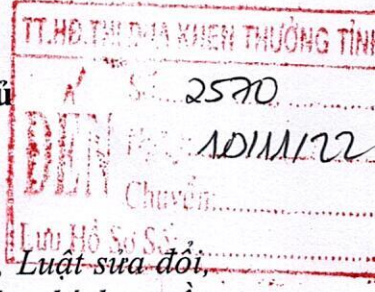 TT.HĐ.THI ĐUA KHEN THƯỞNG TỈNH
ĐẾN
Số: 2570
10/11/22
Chuyển:
Lưu Hồ Sơ Số:
, Luật sửa đổi,